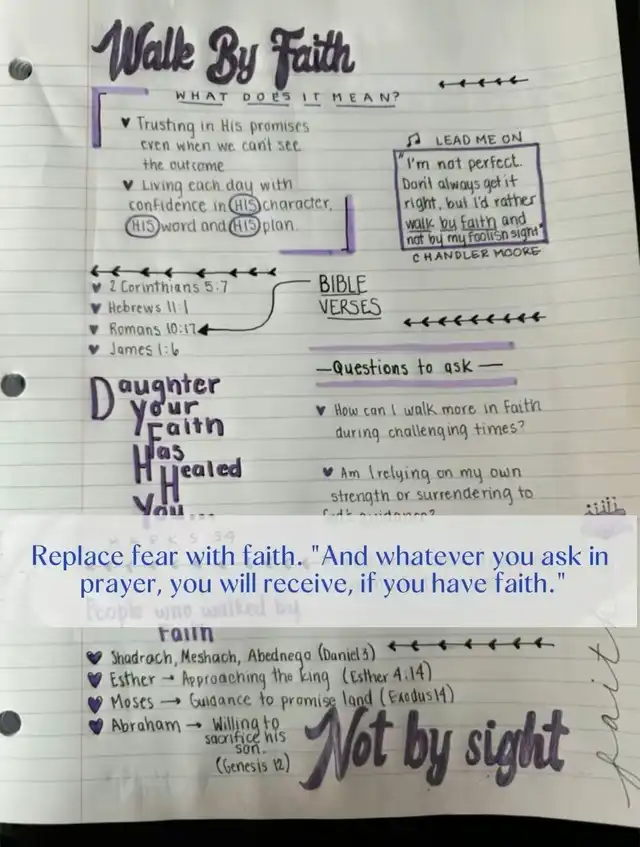 Walk By Faith
WHAT DOES IT MEAN?
Trusting in His promises
even when we can't see
the outcome
Living each day with
confidence in HIS character,
HIS word and HIS plan.
LEAD ME ON
"I'm not perfect.
Don't always get it
right, but I'd rather
walk by faith and
not by my foolish sight"
CHANDLER MOORE
2 Corinthians 5:7
Hebrews 11:1
Romans 10:17
James 1:6
BIBLE
VERSES
Questions to ask
How can I walk more in faith
during challenging times?
Am I relying on my own
strength or surrendering to
God's guidance?
Daughter
your
Faith
Has
Healed
You...
Replace fear with faith. "And whatever you ask in
prayer, you will receive, if you have faith."
People who walked by
Faith
Shadrach, Meshach, Abednego (Daniel 3)
Esther → Approaching the king (Esther 4:14)
Moses → Guidance to promise land (Exodus 14)
Abraham → Willing to
sacrifice his
son.
(Genesis 12)
Not by sight
faith